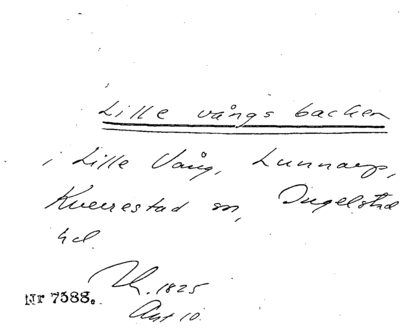 Lille vångs backen
i Lille Vång, Lunnarp,
Kverrestad sn, Ingelstad
hd.
1825
Nr 7588.
Ant 10.